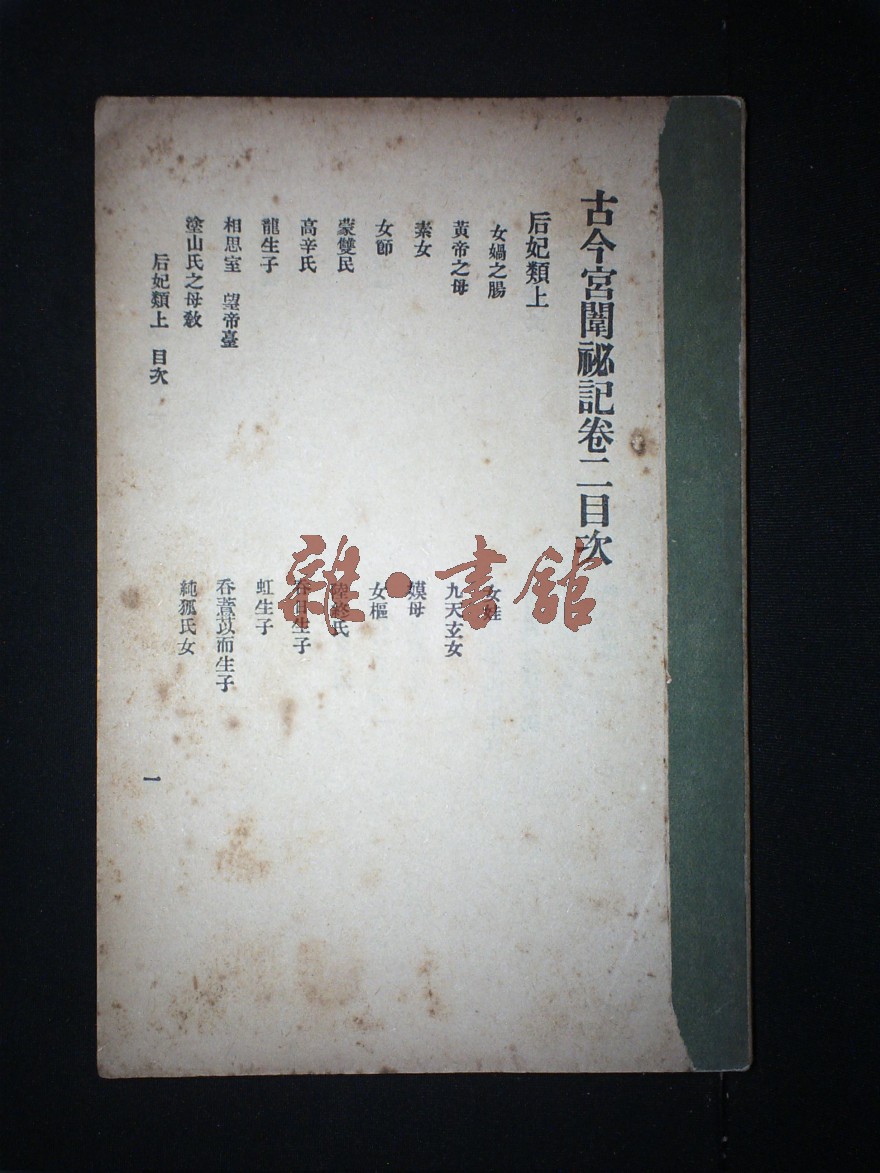 古今宮闈祕記卷二目次
后妃類上
女媧之腸 女娃
黃帝之母 九天玄女
素女 嫫母
女節 女樞
蒙雙民
高辛氏 吞日生子
龍生子 虹生子
相思室 望帝臺 吞薏苡而生子
塗山氏之母敎 純狐氏女
后妃類上 目次 一
雜·書館